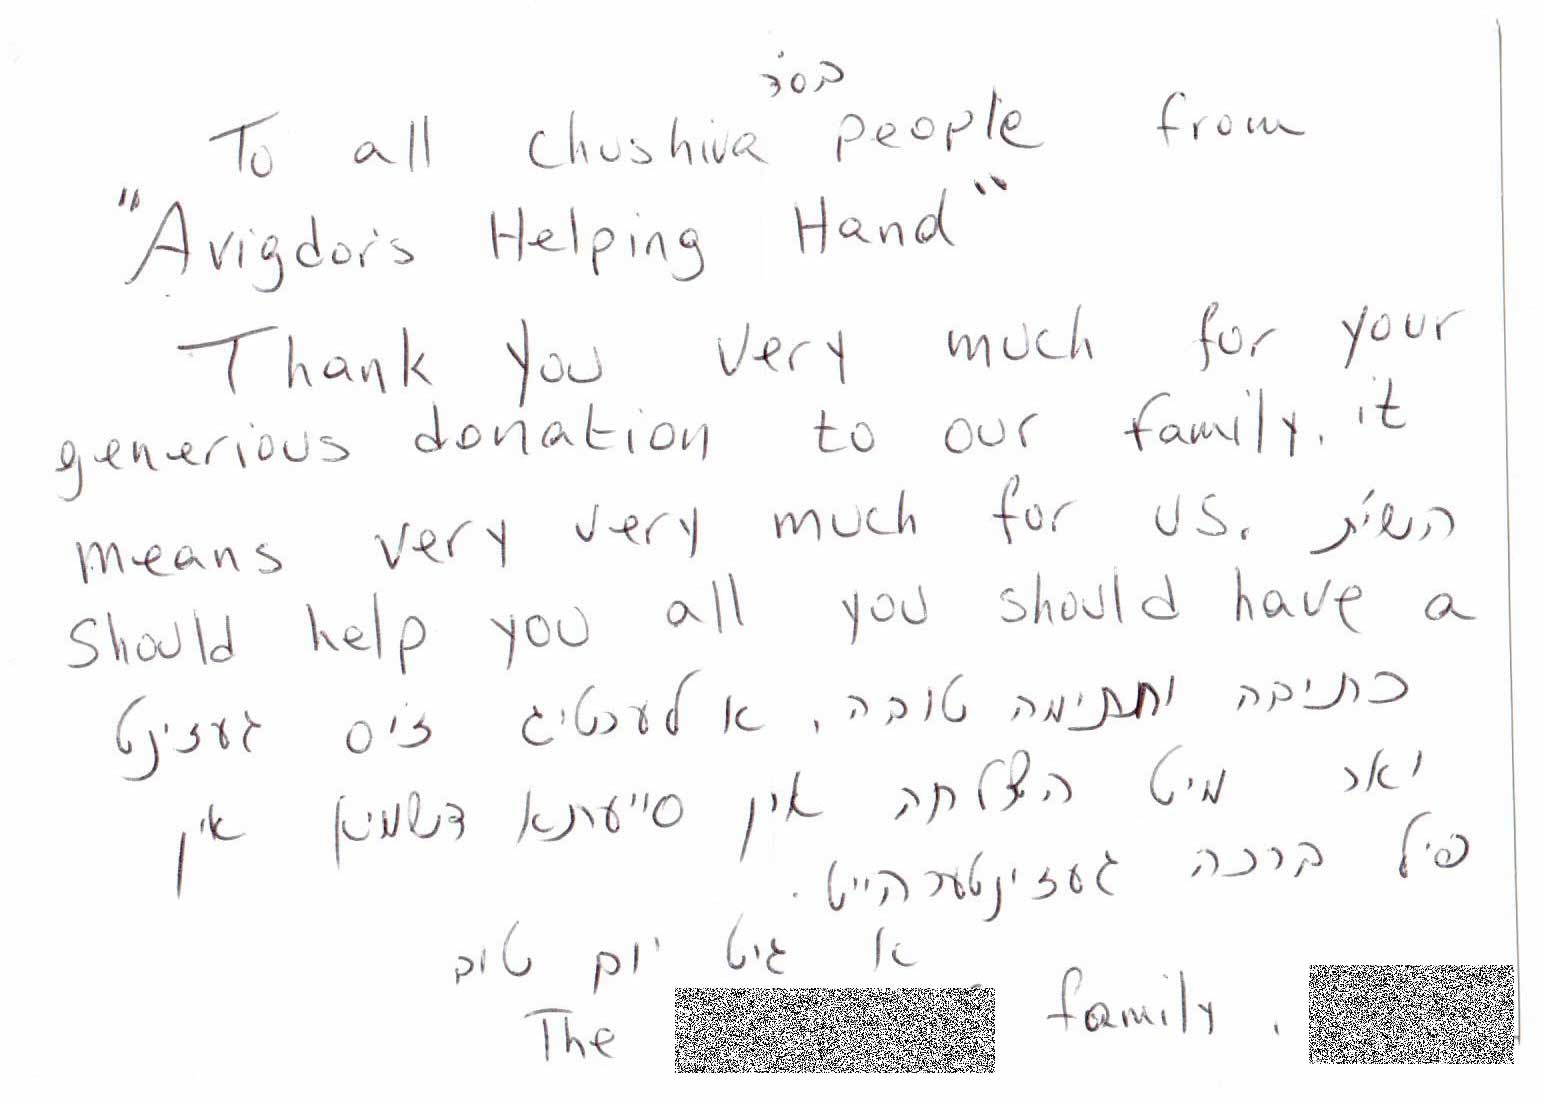 בס"ד
To all chushiva people from
"Avigdor's Helping Hand"
Thank you very much for your
generious donation to our family. it
means very very much for us. השי"ת
should help you all you should have a
כתיבה וחתימה טובה, א לעכטיג זיס געזינט
יאר מיט הצלחה אין סייעתא דשמיא אין
פיל ברכה געזינטערהייט.
א גיט יום טוב
The family.